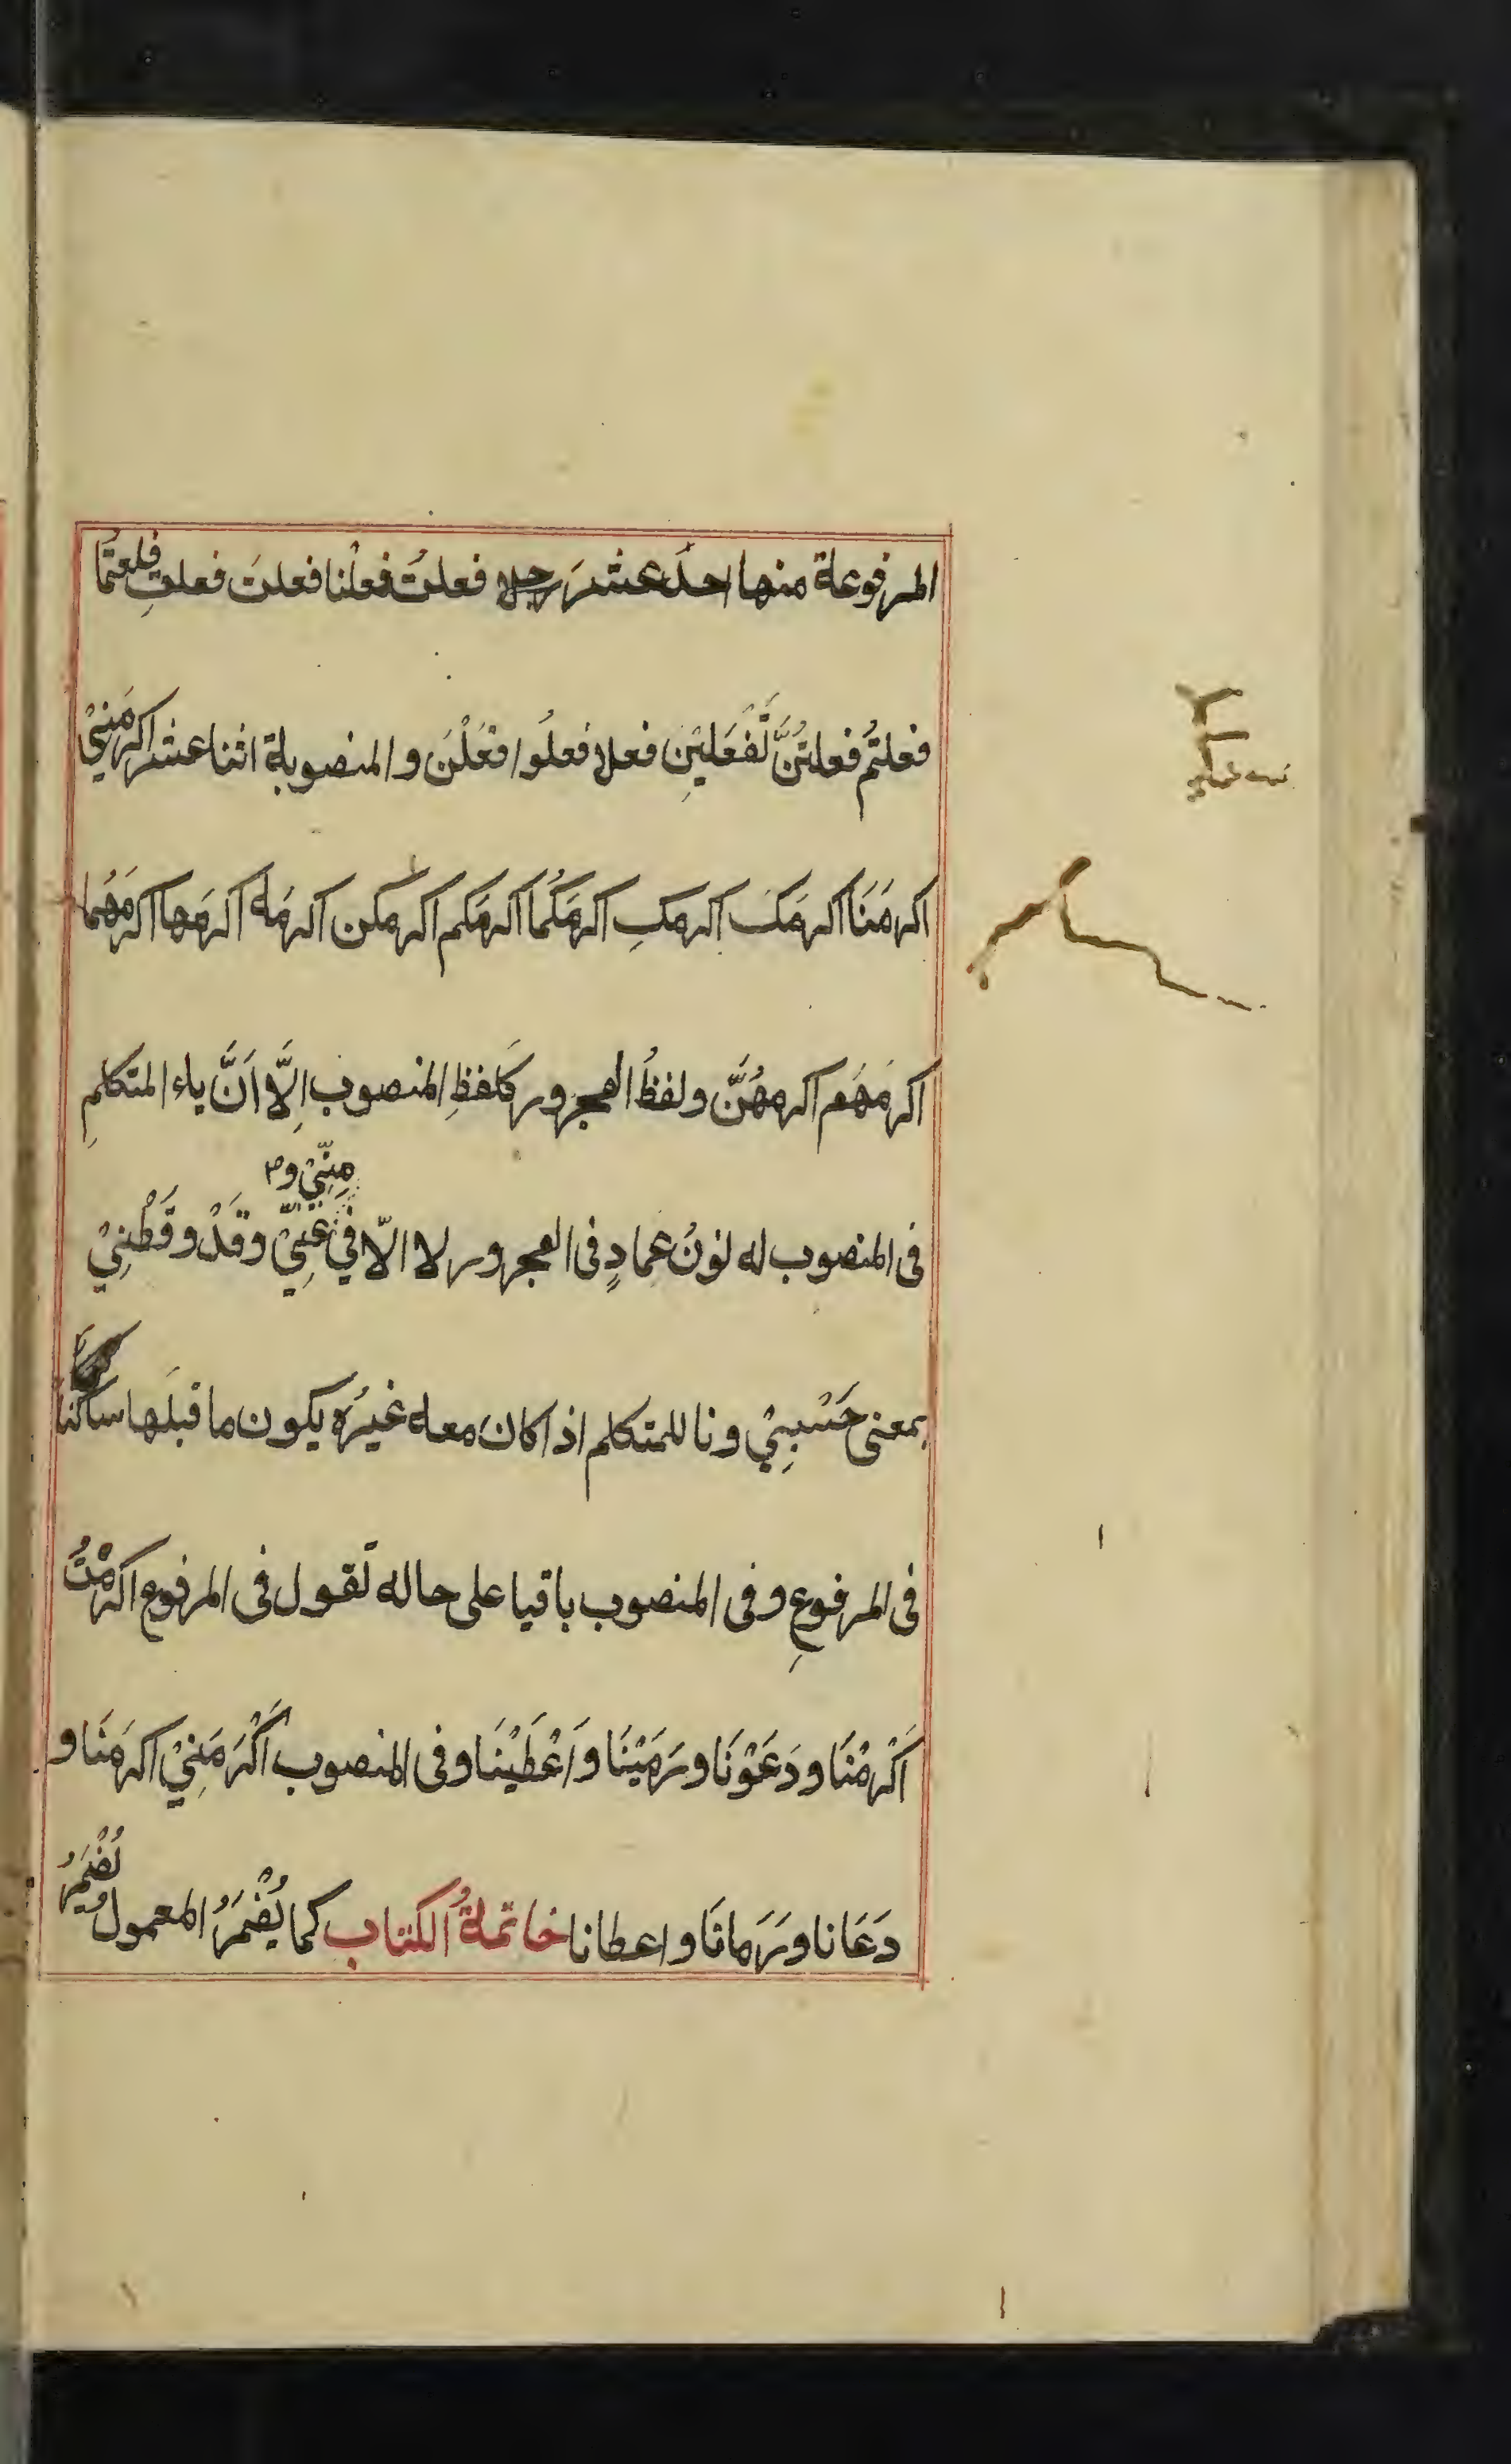 المرفوعة منها احدَ عشرَ رجلا فعلتُ فعلْنا فعلتَ فعلتِ فلعتُما
فعلتُم فعلتُنَّ تَفْعَلِينَ فعلا فعلُوا فعَلْنَ والمنصوبة اثنا عشر اكرمَنِيْ
اكرمَنَا اكرمَكَ اكرمكِ اكرمَكُما اكرمَكم اكرمكن اكرمَه اكرمَها اكرمَهُما
اكرمَهَم اكرمهُنَّ ولفظُ المجرور كلفظِ المنصوب اِلَّا اَنَّ ياء المتكلمِ
مِنِّيْ و
فى المنصوب له نونُ عمادٍ فى المجرور لا الّا في عَنِّيْ وقَدْ وقَطْنِيْ
بمعنى حَسْبِيْ ونا للمتكلم اذا كانَ معه غيرُه يكون ما قبلَها ساكنا
فى المرفوعِ وفى المنصوب باقيا على حاله تقول فى المرفوع اكرمْتُ
اَكْرمْنَا ودَعَوْنَا ورَمَيْنَا وَاَعْطَيْنَا وفى المنصوب اَكْرَمَنِيْ اكرمَنَا و
دَعَانا ورَمانَا واعطانا خاتمةُ الكتاب كما يُضْمَرُ المعمولُ يُضْمَرُ